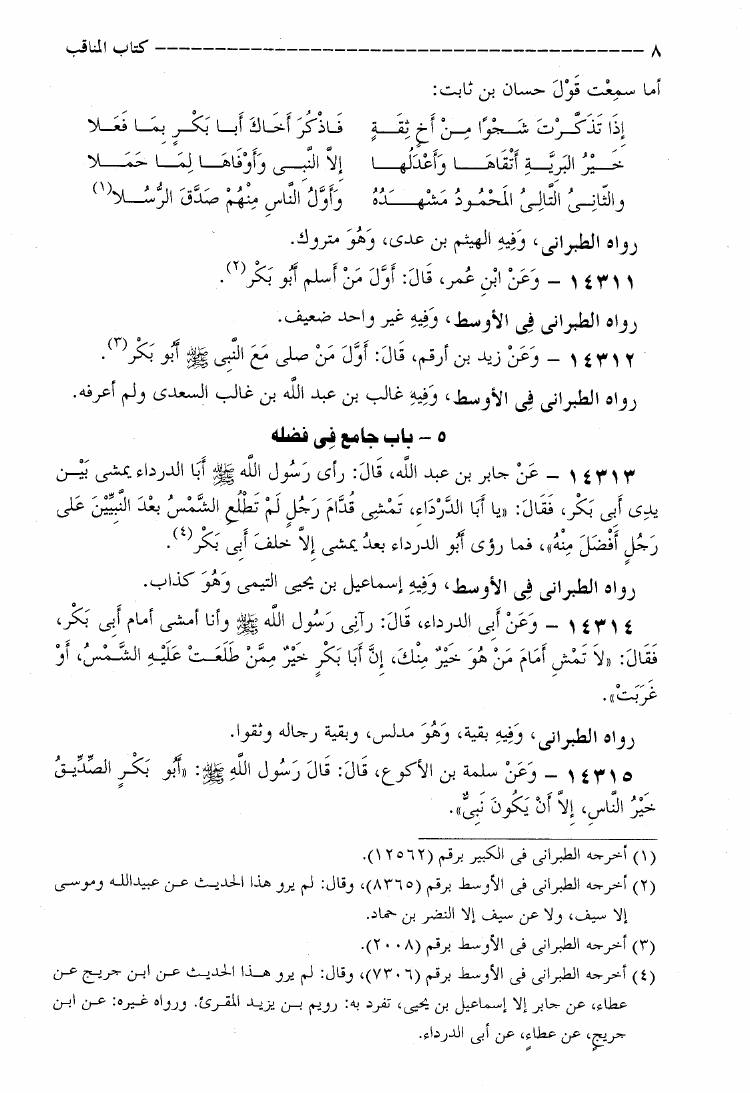 ٨ ــــــــــــــــــــــــــــــــــــــــ كتاب المناقب
أما سمِعْت قَوْلَ حسان بن ثابت:
إِذَا تَذَكَّرْتَ شَجْوًا مِنْ أَخٍ ثِقَةٍ فَاذْكُرْ أَخَاكَ أَبا بَكْرٍ بِمَا فَعَلا
خَيْرُ البَرِيَّةِ أَتْقَاهَا وَأَعْدَلُها إِلاَّ النَّبِى وَأَوْفَاهَا لِمَا حَمَلا
والثَّانِىُ التَّالِىُ المَحْمُودُ مَشْهَدُهُ وَأَوَّلُ النَّاسِ مِنْهُمْ صَدَّقَ الرُّسُلا(١)
رواه الطبرانى، وَفِيهِ الهيثم بن عدى، وَهُوَ متروك.
١٤٣١١ – وَعَنْ ابْنِ عُمر، قَالَ: أوَّلَ مَنْ أسلم أَبُو بَكْر(٢).
رواه الطبرانى فِى الأوسط، وَفِيهِ غير واحد ضعيف.
١٤٣١٢ – وَعَنْ زيد بن أرقم، قَالَ: أَوَّلَ مَنْ صلى مَعَ النَّبِى ﷺ أَبُو بَكْر(٣).
رواه الطبرانى فِى الأوسط، وَفِيهِ غالب بن عبد الله بن غالب السعدى ولم أعرفه.
٥ – باب جامع فِى فضله
١٤٣١٣ – عَنْ جابر بن عبد الله، قَالَ: رأى رَسُول اللَّه ﷺ أَبَا الدرداء يمشى بَيْن
يدى أَبِى بَكْر، فَقَالَ: «يا أَبَا الدَّرْدَاء، تَمْشِى قُدَّامَ رَجُلٍ لَمْ تَطْلُعِ الشَّمْسُ بعْدَ النَّبِيِّينَ عَلَى
رَجُلٍ أَفْضَلَ مِنْهُ»، فما رؤى أَبُو الدرداء بعدُ يمشى إِلاَّ خلفَ أَبِى بَكْر(٤).
رواه الطبرانى فِى الأوسط، وَفِيهِ إسماعيل بن يحيى التيمى وَهُوَ كذاب.
١٤٣١٤ – وَعَنْ أَبِى الدرداء، قَالَ: رآنِى رَسُول اللَّه ﷺ وأنا أمشى أمام أَبِى بَكْر،
فَقَالَ: «لاَ تَمْشِ أَمَامَ مَنْ هُوَ خَيْرٌ مِنْكَ، إِنَّ أَبَا بَكْرٍ خَيْرُ مِمَّنْ طَلَعَتْ عَلَيْهِ الشَّمْسُ، أَوْ
غَرَبَتْ».
رواه الطبرانى، وَفِيهِ بقية، وَهُوَ مدلس، وبقية رجاله وثقوا.
١٤٣١٥ – وَعَنْ سلمة بن الأكوع، قَالَ: قَالَ رَسُول اللَّهِ ﷺ: «أَبُو بَكْرٍ الصِّدِّيقُ
خَيْرُ النَّاسِ، إِلاَّ أَنْ يَكُونَ نَبِىٌّ».
(١) أخرجه الطبرانى فى الكبير برقم (١٢٥٦٢).
(٢) أخرجه الطبرانى فى الأوسط برقم (٨٣٦٥)، وقال: لم يرو هذا الحديث عن عبيدالله وموسى
إلا سيف، ولا عن سيف إلا النضر بن حماد.
(٣) أخرجه الطبرانى فى الأوسط برقم (٢٠٠٨).
(٤) أخرجه الطبرانى فى الأوسط برقم (٧٣٠٦)، وقال: لم يرو هذا الحديث عن ابن جريج عن
عطاء، عن جابر إلا إسماعيل بن يحيى، تفرد به: رويم بن يزيد المقرئ. ورواه غيره: عن ابن
جريج، عن عطاء، عن أبى الدرداء.